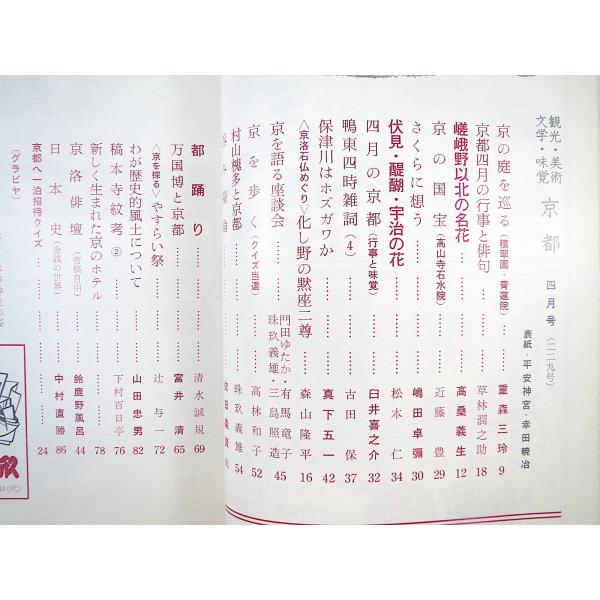 観光・美術
文学・味覚
京都
四月号
(二二九号)
表紙・平安神宮・幸田暁冶
京の庭を巡る(積翠園・青蓮院)………重森三玲 9
京都四月の行事と俳句………草林潤之助 18
嵯峨野以北の名花………高桑義生 12
京の国宝(高山寺石水院)………近藤豊 29
さくらに想う………嶋田卓彌 30
伏見・醍醐・宇治の花………松本仁 34
四月の京都(行事と味覚)………臼井喜之介 32
鴨東四時雑詞(4)………古田保 37
保津川はホズガワか………真下五一 42
〈京洛石仏めぐり〉化し野の黙座二尊………森山隆平 16
京を語る座談会………門田ゆたか・有馬竜子・珠玖義雄・三島照造 45
京を歩く(クイズ当選)………高林和子 52
村山槐多と京都………珠玖義雄 54
都踊り………清水誠規 69
万国博と京都………富井清 65
〈京を探る〉やすらい祭………辻与一 72
わが歴史的風土について………山田忠男 82
稿本寺紋考②………下村百日亭 76
新しく生まれた京のホテル………78
京洛俳壇(寄稿自由)………鈴鹿野風呂 44
日本史(金銭の世界)………中村直勝 86
京都へ一泊招待クイズ………24
〔グラビヤ〕